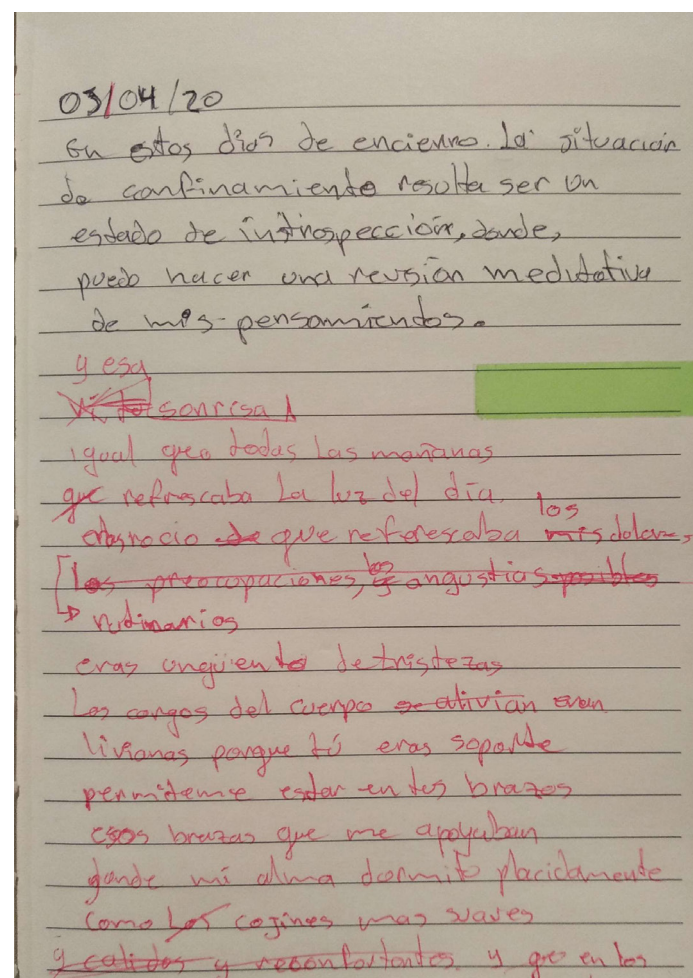 03/04/20
En estos dias de encierro. La situación
de confinamiento resulta ser un
estado de instrospección, donde,
puedo hacer una revisión medutativa
de mis pensamientos.
y esa
sonrisa
igual que todas las mañanas
que refrescaba La luz del día
los
eras rocio de que reforescaba mis dolores,
Las preocupaciones, las angustias posibles
rutinarios
eras ungüento de tristezas
Las cargas del cuerpo se alivian eran
livianas porque tú eras soporte
permiteme estar en tus brazos
esos brazos que me apoyaban
donde mi alma dormito placidamente
como Los cojines mas suaves
y calidos y reconfortantes y que en los